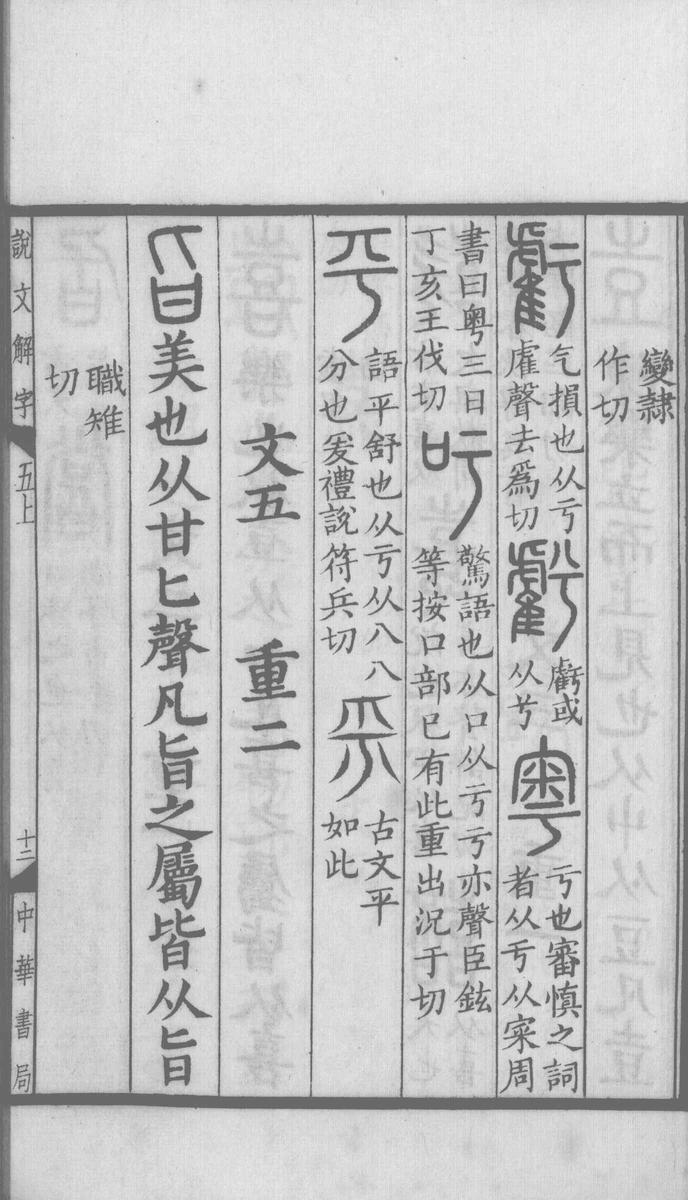 變隸
作切
虧
气損也从亏
雐聲去爲切
𧇾
虧或
从兮
粵
亏也審慎之詞
者从亏从宷周
書曰粵三日
丁亥王伐切
吁
驚語也从口从亏亏亦聲臣鉉
等按口部已有此重出況于切
平
語平舒也从亏从八八
分也爰禮說符兵切
𠀘
古文平
如此
文五　重二
旨美也从甘匕聲凡旨之屬皆从旨
職雉
切
說文解字　五上　十二　中華書局